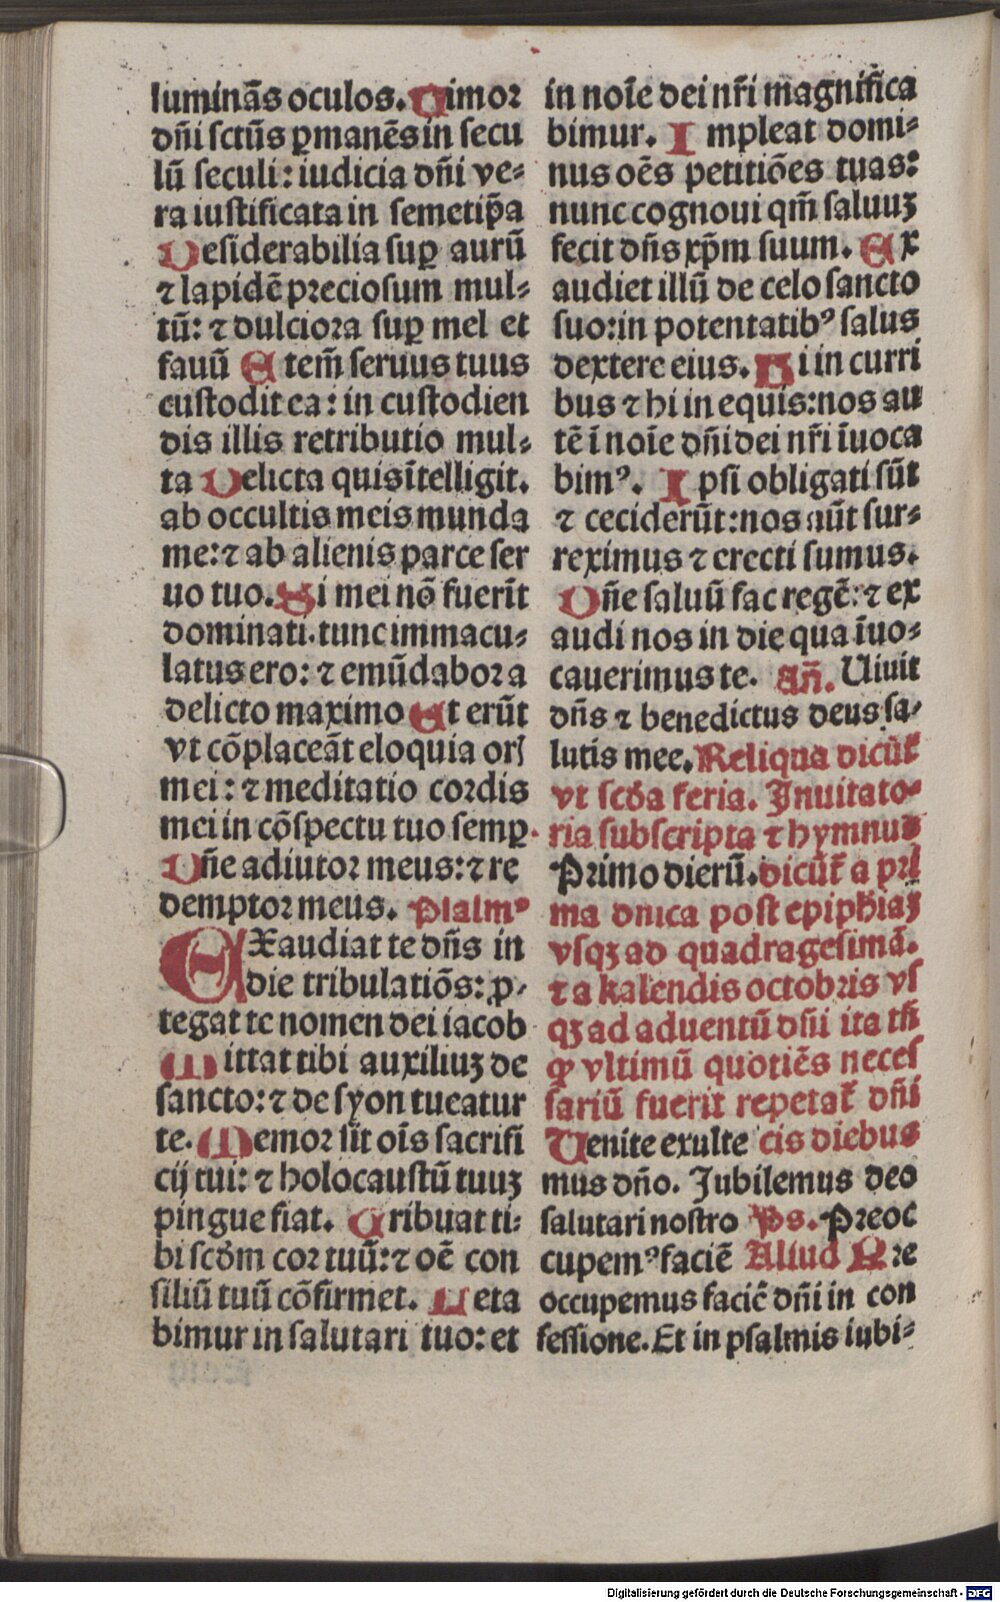 luminãs oculos. Timor
dñi sctũs ꝑmanẽs in secu
lũ seculi: iudicia dñi ve⸗
ra iustificata in semetip̃a
Desiderabilia suꝑ aurũ
⁊ lapidẽ preciosum mul⸗
tũ: ⁊ dulciora suꝑ mel et
fauũ Etem̃ seruus tuus
custodit ea: in custodien
dis illis retributio mul⸗
ta Delicta quis ĩtelligit.
ab occultis meis munda
me: ⁊ ab alienis parce ser
uo tuo. Si mei nõ fuerĩt
dominati. tunc immacu⸗
latus ero: ⁊ emũdabor a
delicto maximo Et erũt
vt cõplaceãt eloquia orꝭ
mei: ⁊ meditatio cordis
mei in cõspectu tuo semꝑ.
Dñe adiutor meus: ⁊ re
demptor meus. Psalmꝰ
EXaudiat te dñs in
die tribulatiõs: ꝓ⸗
tegat te nomen dei iacob
Mittat tibi auxiliuꝫ de
sancto: ⁊ de syon tueatur
te. Memor sit oĩs sacrifi
cij tui: ⁊ holocaustũ tuuꝫ
pingue fiat. Tribuat ti⸗
bi scd̃m cor tuũ: ⁊ oẽ con
siliũ tuũ cõfirmet. Leta
bimur in salutari tuo: et
in noĩe dei nr̃i magnifica
bimur. Impleat domi⸗
nus oẽs petitiões tuas:
nunc cognoui qm̃ saluuꝫ
fecit dñs xp̃m suum. Ex
audiet illũ de celo sancto
suo: in potentatibꝰ salus
dextere eius. Hi in curri
bus ⁊ hi in equis: nos au
tẽ ĩ noĩe dñi dei nr̃i ĩuoca
bimꝰ. Ipsi obligati sũt
⁊ ceciderũt: nos aũt sur⸗
reximus ⁊ erecti sumus.
Dñe saluũ fac regẽ: ⁊ ex
audi nos in die qua ĩuo⸗
cauerimus te. Añ. Uiuit
dñs ⁊ benedictus deus sa⸗
lutis mee. Reliqua dicũt̃
vt scd̃a feria. Inuitato⸗
ria subscripta ⁊ hymnus
Primo dierũ. dicũt̃ a pri
ma dnica post epiph̃iaꝫ
vsqꝫ ad quadragesimã.
⁊ a kalendis octobris vs
qꝫ ad aduentũ dñi ita tñ
ꝙ vltimũ quotiẽs neces
sariũ fuerit repetat̃ dñi
Uenite exulte cis diebus
mus dño. Jubilemus deo
salutari nostro Ps. Preoc
cupemꝰ faciẽ Aliud Pre
occupemus faciẽ dñi in con
fessione. Et in psalmis iubi⸗
Digitalisierung gefördert durch die Deutsche Forschungsgemeinschaft - DFG